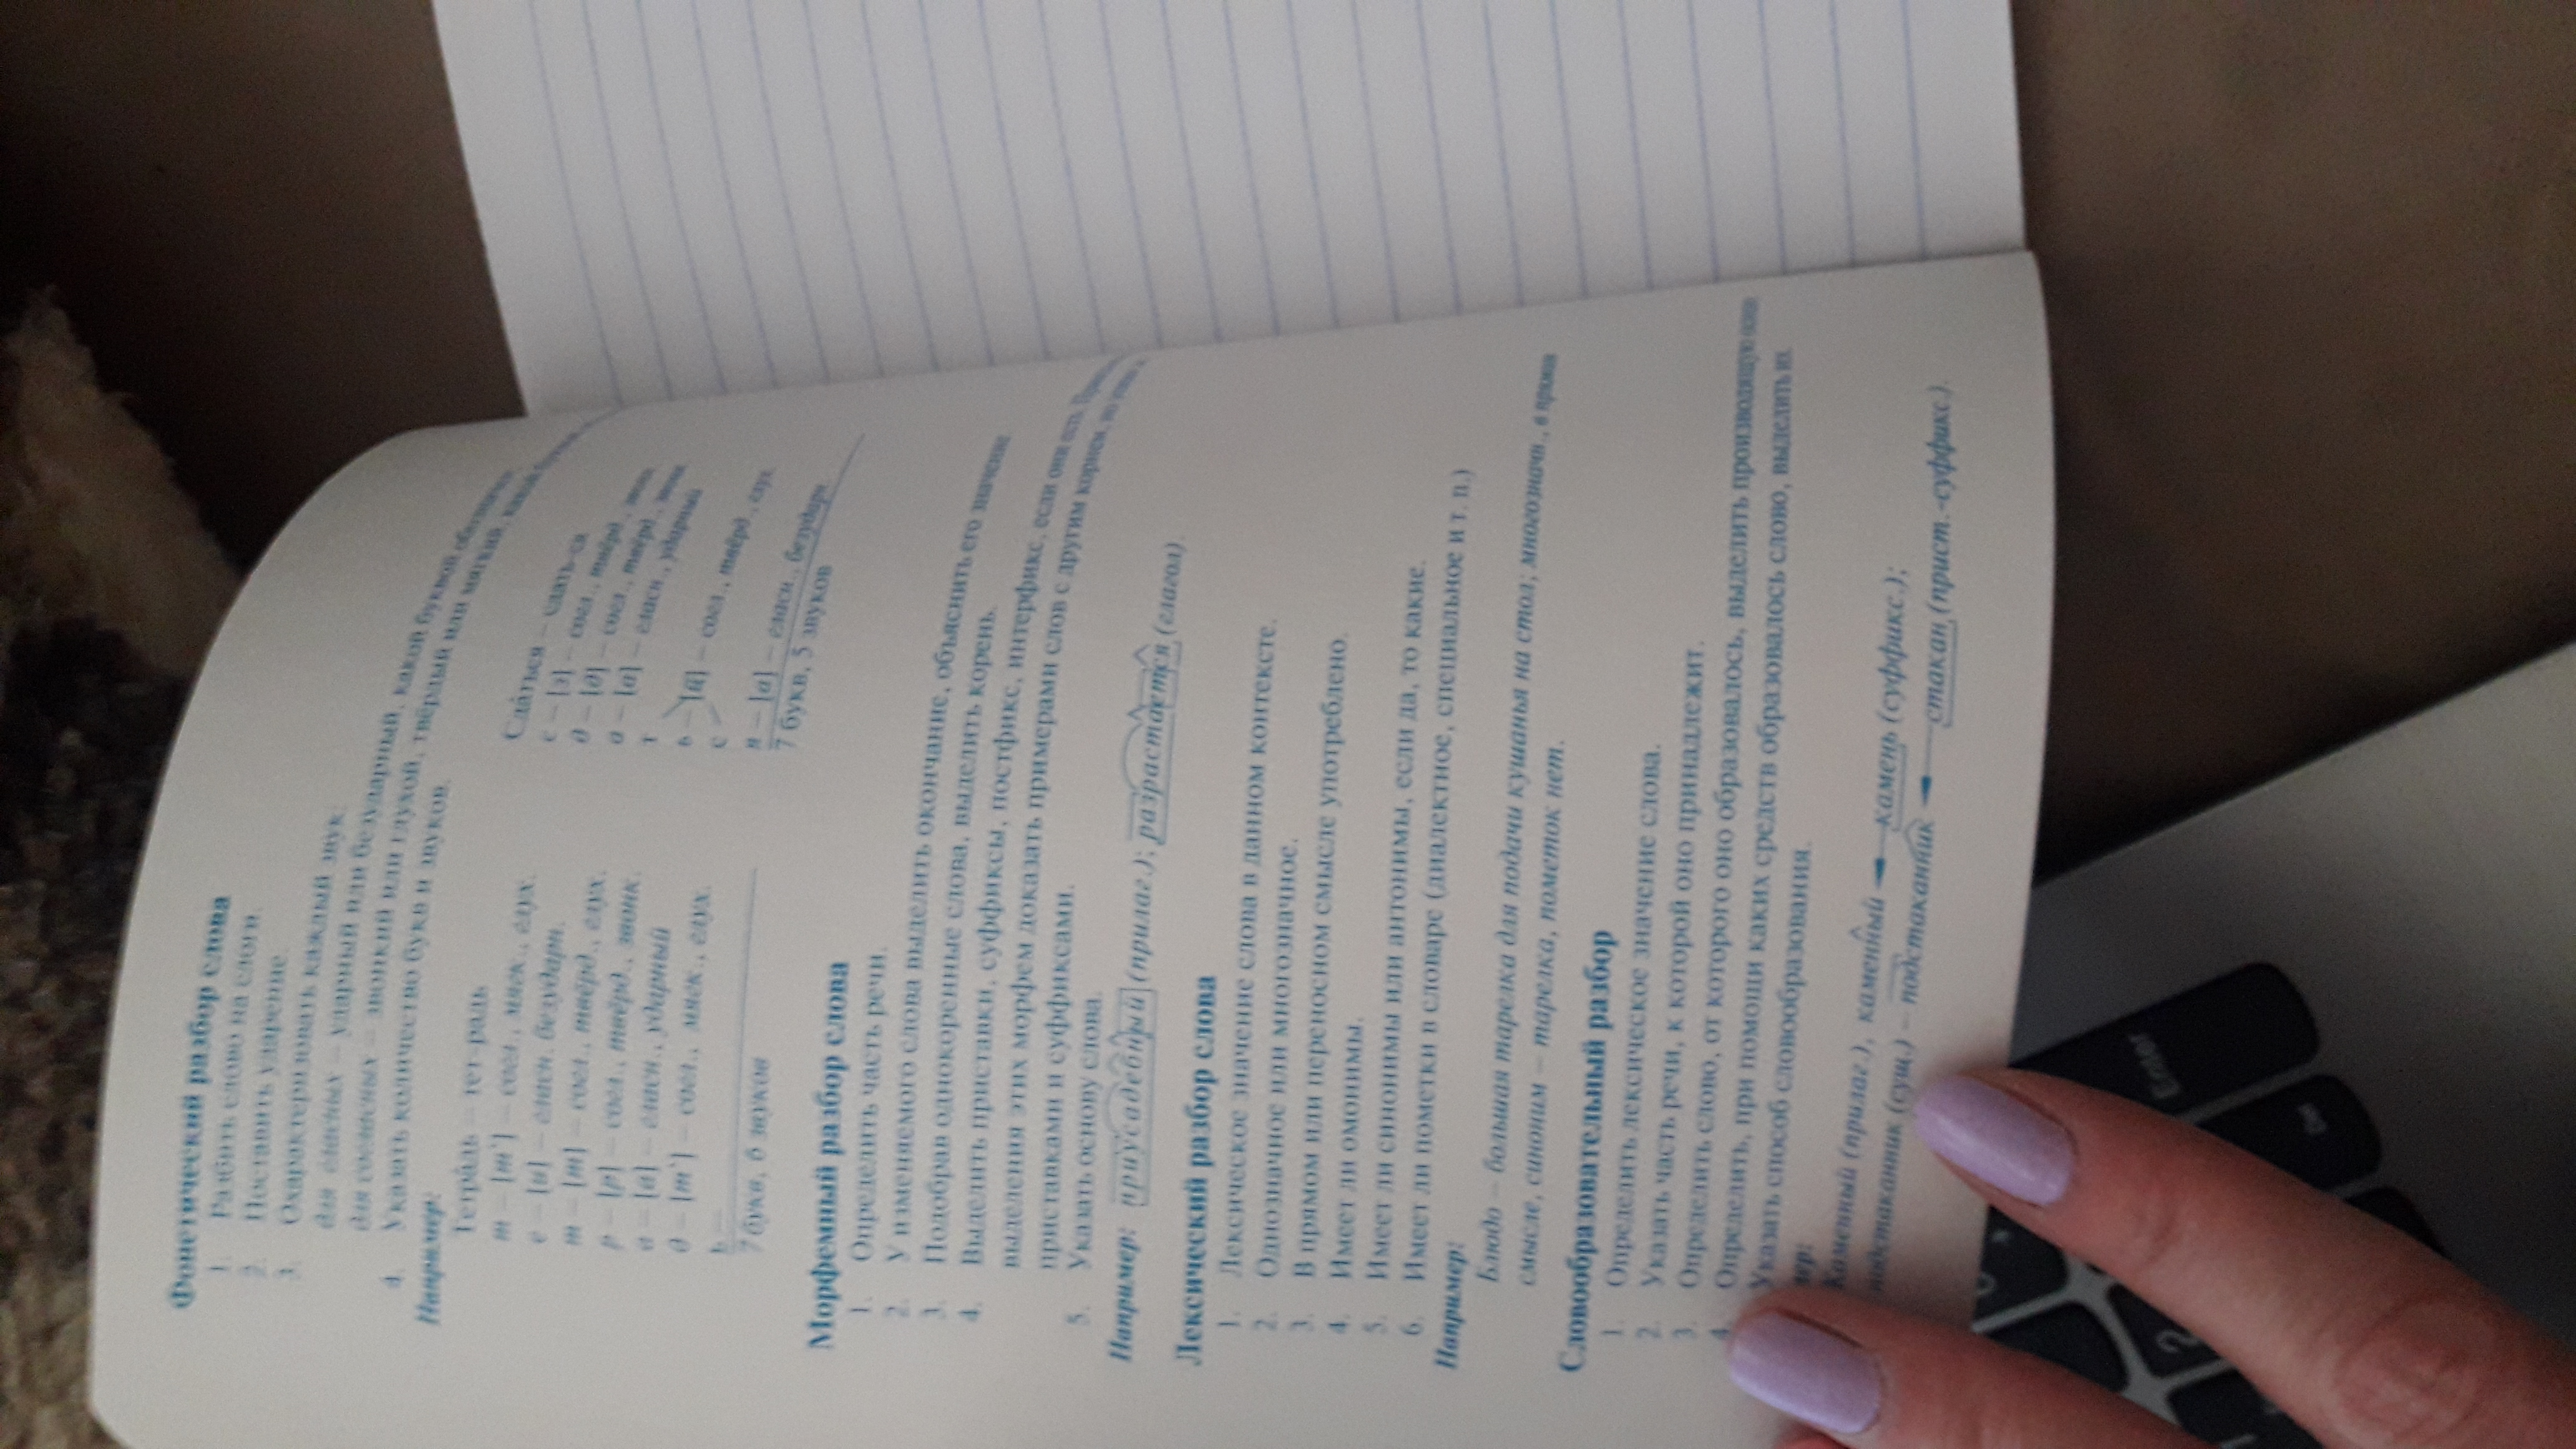 Фонетический разбор слова
1. Разбить слово на слоги.
2. Поставить ударение.
3. Охарактеризовать каждый звук:
для гласных – ударный или безударный, какой буквой
для согласных – звонкий или глухой, твёрдый или мягкий, какой
4. Указать количество букв и звуков.
Например:
Тетрадь – тет-радь
т – [т'] – согл., мягк., глух.
е – [и] – гласн. безударн.
т – [т] – согл., твёрд., глух.
р – [р] – согл., твёрд., звонк.
а – [а] – гласн., ударный
д – [т'] – согл., мягк., глух.
ь –
7 букв, 6 звуков
Сдаться – сдать-ся
с – [з] – согл., твёрд., звон
д – [д] – согл., твёрд., звон
а – [а] – гласн., ударный
т
ь – [ц] – согл., твёрд., глух
с
я – [а] – гласн., безудар
7 букв, 5 звуков
Морфемный разбор слова
1. Определить часть речи.
2. У изменяемого слова выделить окончание, объяснить его значение
3. Подобрав однокоренные слова, выделить корень.
4. Выделить приставки, суффиксы, постфикс, интерфикс, если они есть.
выделения этих морфем доказать примерами слов с другим корнем, но
приставками и суффиксами.
5. Указать основу слова.
Например: приусадебный (прилаг.); разрастается (глагол).
Лексический разбор слова
1. Лексическое значение слова в данном контексте.
2. Однозначное или многозначное.
3. В прямом или переносном смысле употреблено.
4. Имеет ли омонимы.
5. Имеет ли синонимы или антонимы, если да, то какие.
6. Имеет ли пометки в словаре (диалектное, специальное и т. п.)
Например:
Блюдо – большая тарелка для подачи кушанья на стол; многозначн., в прямо
смысле, синоним – тарелка, пометок нет.
Словообразовательный разбор
1. Определить лексическое значение слова.
2. Указать часть речи, к которой оно принадлежит.
3. Определить слово, от которого оно образовалось, выделить производящую
4. Определить, при помощи каких средств образовалось слово, выделить их
Указать способ словообразования.
Каменный (прилаг.), каменный ← камень (суффикс.);
подстаканник (сущ.) – подстаканник ← стакан (прист.-суффикс.).
Enter
2